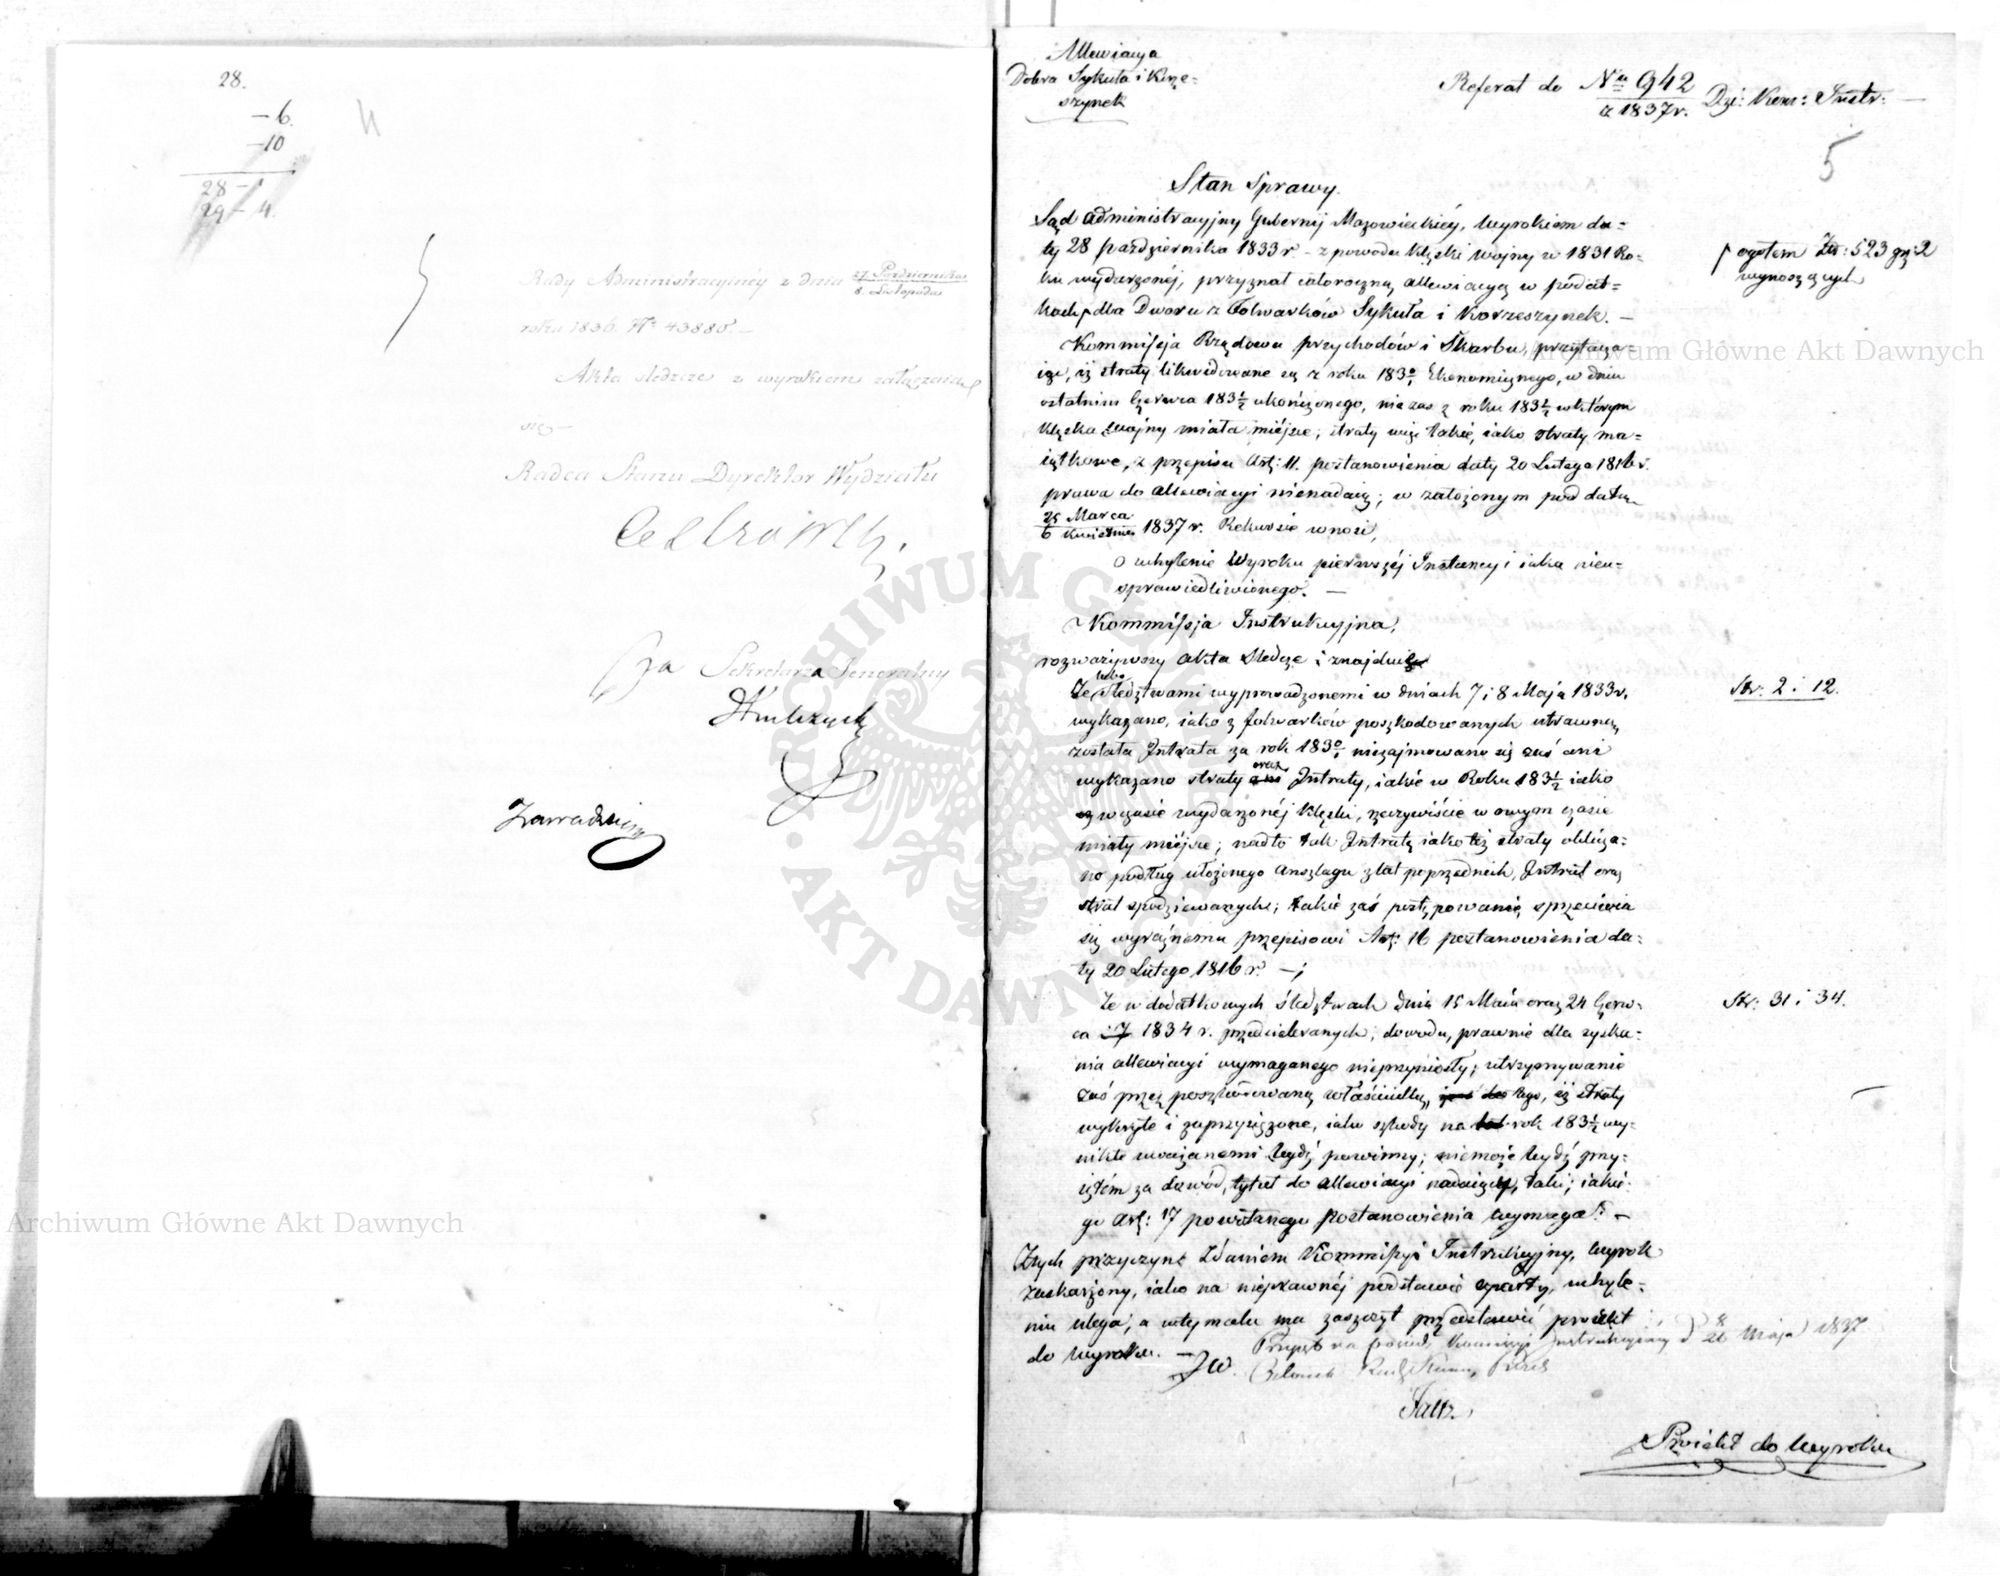 28.
— 6.
—10
28 — 1
29 — 4.
Rady Administracyjnéy z dnia 27 Października
8. Listopada
roku 1836. Nr 43885. —
Akta śledcze z wyrokiem załączaią
się —
Radca Stanu Dyrektor Wydziału
za Sekretarza Generalny
Zawadzki
Allewiacya
Dobra Sykuła i Korze=
szynek
Referat do Nru 942 Dzi: Kom: Instr: —
z 1837 r.
5
Stan Sprawy.
Sąd Administracyjny Gubernij Mazowieckiéy, wyrokiem da=
ty 28 października 1833 r — z powodu klęski wojny w 1831 Ro=
ku wydarzonéj, przyznał całoroczną allewiacyą w podat=
kach dla Dworu z Folwarków Sykuła i Korzeszynek. —
ogółem Złr: 523 gr: 2
wynoszących
Kommissja Rządowa przychodów i Skarbu, przytacza=
iąc, iż straty likwidowane są z roku 183 0/1 Ekonomicznego, w dniu
ostatnim Czerwca 183 1/2 ukończonego, nie zaś z roku 183 1/2 w którym
klęska wojny miała miéjsce; straty więc takie, iako straty ma=
iątkowe, z przepisu Art: 11. postanowienia daty 20 Lutego 1816 r.
prawa do allewiacyi nienadaią; w założonym pod datą
25 Marca
6 Kwietnia 1837 r. Rekursie wnosi,
o uchylenie Wyroku pierwszéj Instancyi iako nieu=
sprawiedliwionego. —
Kommissja Instrukcyjna,
rozważywszy akta śledcze i znajduie
Że śledztwami wyprowadzonemi w dniach 7 i 8 Maja 1833 r.
Str: 2 i 12.
wykazano, iako z folwarków poszkodowanych utraconą
została Intrata za rok 183 0/1 niezajmowano się zaś ani
wykazano straty oraz Intraty, iakie w Roku 183 1/2 iako
w czasie wydarzonéj klęski, rzeczywiście w owym czasie
miały miéjsce; nadto tak Intratę iako też straty oblicza=
no podług ułożonego anszlagu z lat poprzednich, Intrat oraz
strat spodziewanych; takie zaś postępowanie sprzeciwia
się wyraźnemu przepisowi Art: 16 postanowienia da=
ty 20 Lutego 1816 r. —;
Że w dodatkowych śledztwach dnia 15 Maia oraz 24 Czerw=
Str: 31 i 34.
ca 1834 r. przedsiebranych, dowodu, prawnie dla zyska=
nia allewiacyi wymaganego nieprzyniosły; utrzymywanie
zaś przez poszkodowaną właścicielkę, tego, iż straty
wykryte i zaprzysiężone, iako szkody na rok 183 1/2 wy=
nikłe uważanemi bydź powinny; niemoże bydź przy=
iętém za dowód, tytuł do allewiacyi nadaiący, taki; iakie=
go Art: 17 powołanego postanowienia wymaga. —
Z tych przyczyn: Zdaniem Kommissyi Instrukcyjny, wyrok
zaskarżony, iako na nieprawnéj podstawie oparty, uchyle=
niu ulega, a w tey mierze ma zaszczyt przedstawić proiekt
do wyroku. —
Przyięto na posiedz. Kommissyi Instrukcyjnéy d 8/20 Maja 1837
Członek Radz. Stanu
Proiekt do Wyroku